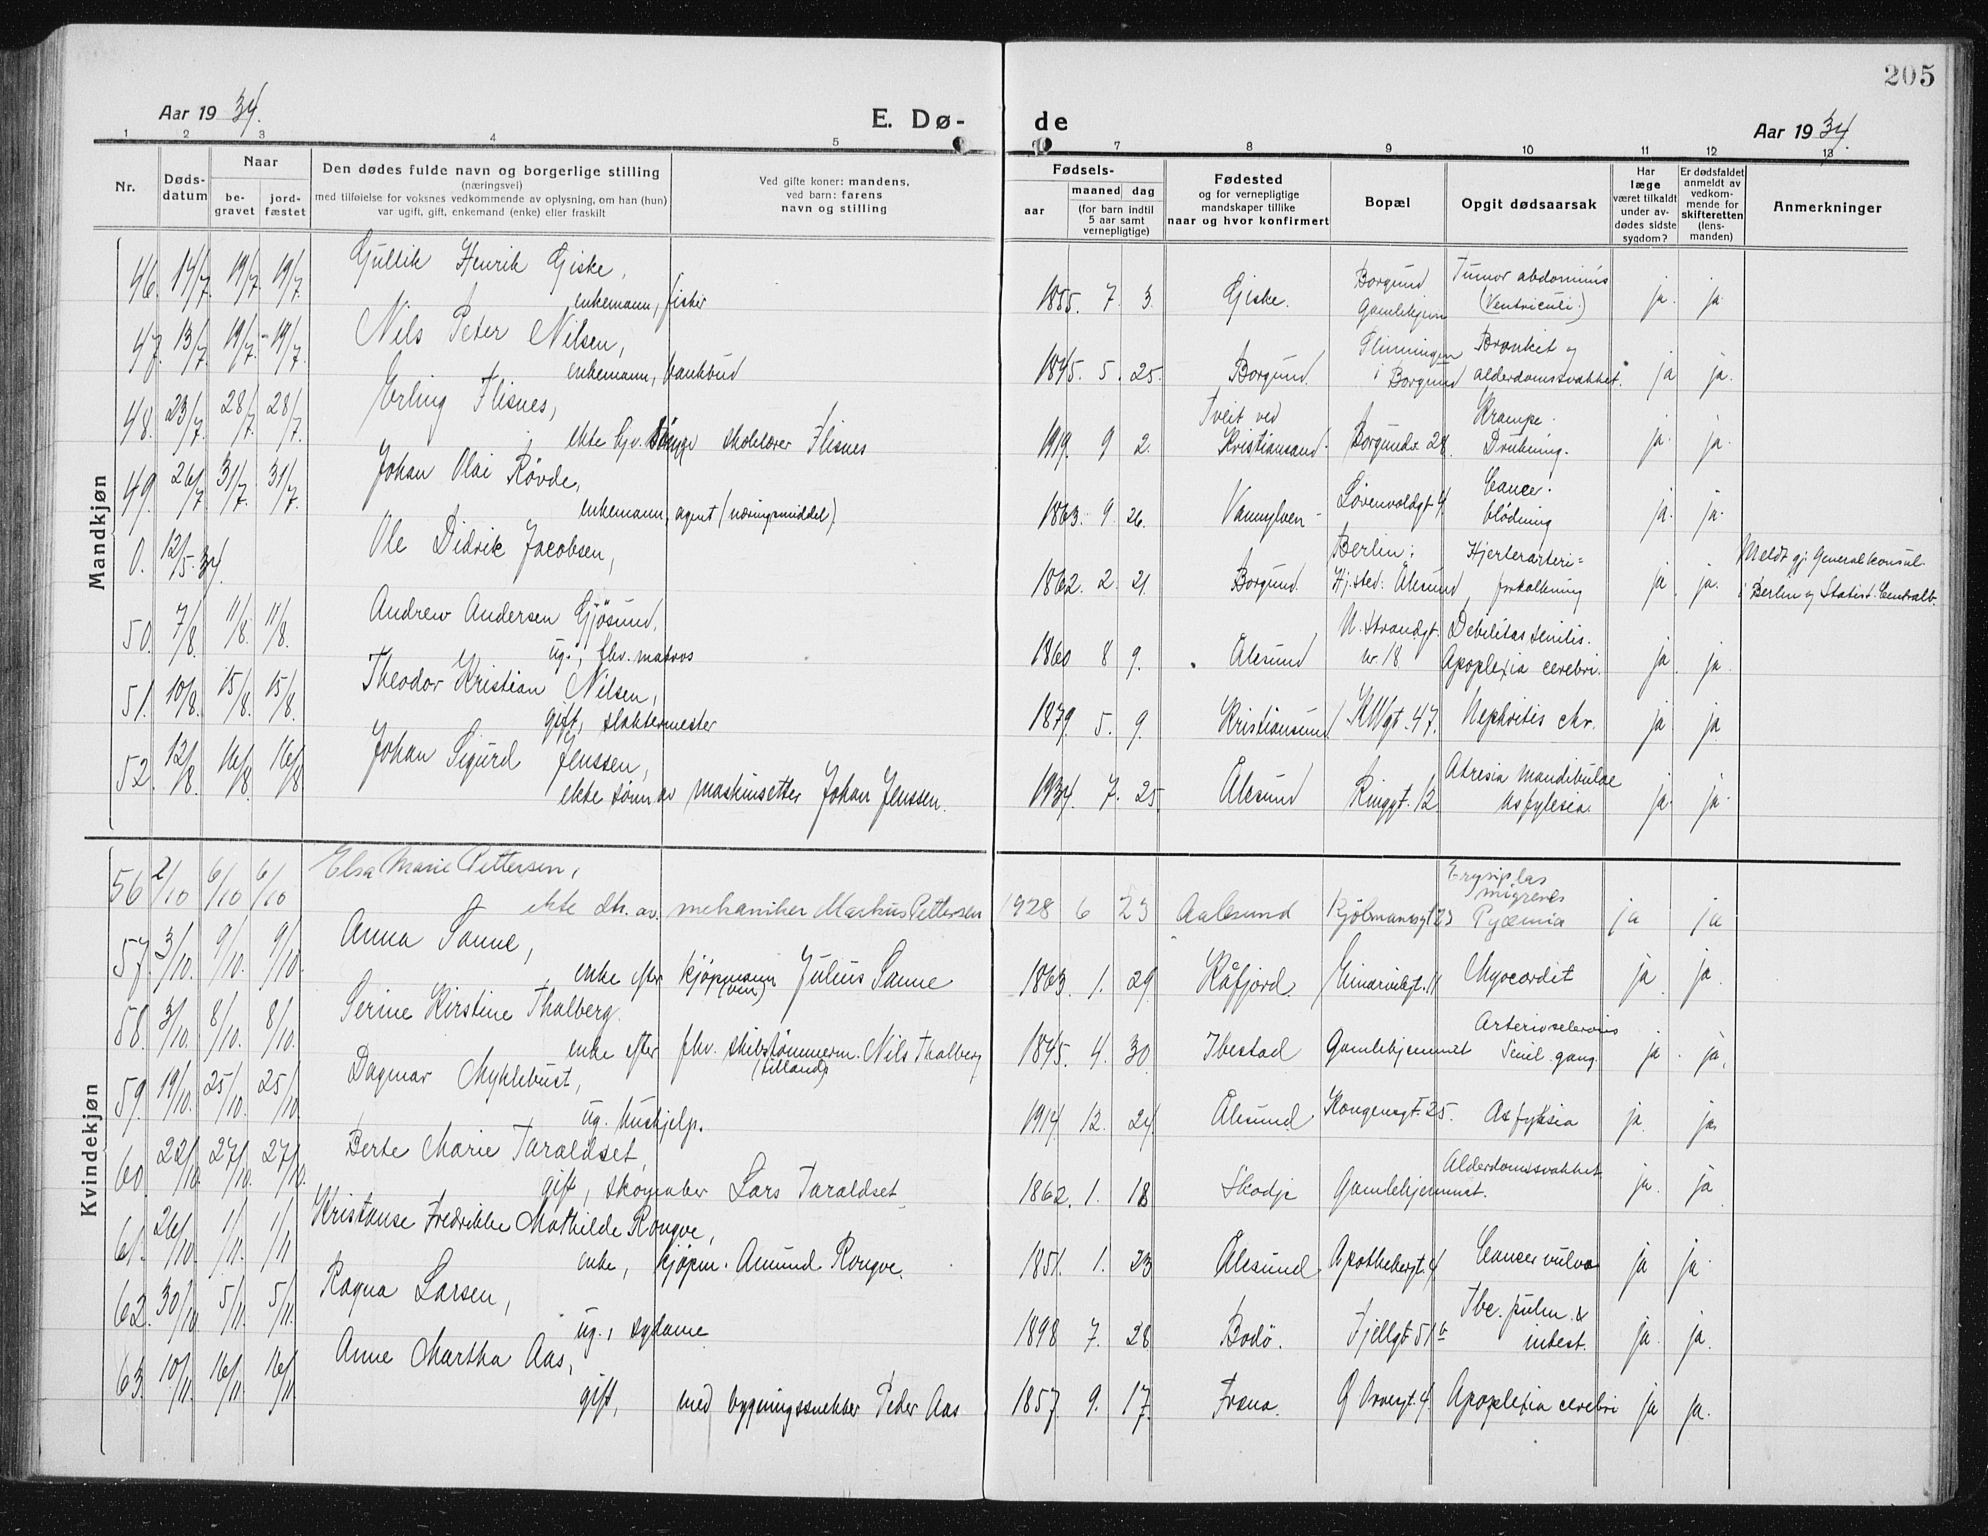 205
Aar 1934.
E. Dø-
de
Aar 1934.
1 2 3 4 5 7 8 9 10 11 12 13
Nr.
Døds-
datum
Naar
be-
gravet
jord-
fæstet
Den dødes fulde navn og borgerlige stilling
(næringsvei)
med tilføielse for voksnes vedkommende av oplysning, om han (hun)
var ugift, gift, enkemand (enke) eller fraskilt
Ved gifte koner: mandens,
ved barn: farens
navn og stilling
Fødsels-
aar
maaned dag
(for barn indtil
5 aar samt
vernepligtige)
Fødested
og for vernepligtige
mandskaper tillike
naar og hvor konfirmert
Bopæl
Opgit dødsaarsak
Har
læge
været tilkaldt
under av-
dødes sidste
sygdom?
Er dødsfaldet
anmeldt av
vedkom-
mende for
skifteretten
(lens-
manden)
Anmerkninger
Mandkjøn
46. 14/7. 19/7. 19/7. Gullik Henrik Giske,
enkemann, fisker 1855. 7. 3. Giske. Borgund Gamlehjem Tumor abdominis (Ventriculi.) ja. ja.
47. 13/7. 19/7. 19/7. Nils Peter Nilsen,
enkemann, bankbud 1845. 5. 25. Borgund. i Borgund Bronkit og alderdomssvakhet. ja ja.
48. 23/7. 28/7. 28/7. Erling Flisnes,
ekte skolelærer Flisnes 1919. 9 2. Tveit ved Kristiansand. Borgundv. 28. Krampe. Drukning. ja. ja.
49. 26/7. 31/7. 31/7. Johan Olai Røvde,
enkemann, agent (næringsmiddel) 1863. 9. 26. Vannylven Løvenvoldgt. 4 Cancer. blødning ja. ja.
0. 12/5-34. Ole Didrik Jacobsen,
1862. 2. 21. Borgund. Berlin: Hj.sted: Ålesund Hjerterarteri= forkalkning ja ja. Meldt gj. Generalkonsul. i Berlin og Statist. Centralb.
50. 7/8. 11/8. 11/8. Andrew Andersen Gjøsund,
ug., fhv. matros 1860 8 9. Ålesund N. Strandgt. nr. 18 Debilitas senilis. Apoplexia cerebri. ja. ja.
51. 10/8. 15/8. 15/8. Theodor Kristian Nilsen,
gift, slaktermester 1879. 5. 9. Kristiansund KWgt. 47. Nephritis chr. ja ja
52. 12/8. 16/8. 16/8. Johan Sigurd Jenssen,
ekte sønn av maskinsetter Johan Jenssen. 1934. 7. 25. Ålesund Ringgt. 12 Atresia mandibulae Asfyksia. ja. ja.
Kvindekjøn
56 2/10 6/10 6/10 Elsa Marie Pettersen,
ekte dt. av. mekaniker Markus Pettersen 1928 6 23 Aalesund Kjølmannsgt 23 Erysiplas migrenes Pyæmia ja ja
57. 3/10. 9/10. 9/10. Anna Sanne,
enke efter kjøpmann Julius Sanne 1863. 1. 29. Kåfjord. Einarvikgt. 11 Myocardit ja. ja.
58. 3/10. 8/10. 8/10. Serine Kirstine Thalberg.
enke efter fhv. skibstømmerm. Nils Thalberg 1845. 4. 30. Ibestad Gamlehjemmet Arteriosclerosis Senil. gang. ja. ja.
59. 19/10. 25/10. 25/10. Dagmar Myklebust,
ug. hushjelp. 1914. 12. 24. Ålesund Kongensgt. 25. Asfyksia ja. ja.
60. 22/10. 27/10. 27/10. Berte Marie Taraldset,
gift, skomaker Lars Taraldset 1862. 1. 18 Skodje Gamlehjemmet. Alderdomssvakhet ja. ja
61. 26/10. 1/11. 1/11 Kristanse Fredrikke Mathilde Rongve,
enke, kjøpm. Amund Rongve. 1851. 1. 23 Ålesund Apothekergt. 4 Cancer vulva ja ja.
62. 30/10. 5/11. 5/11. Ragna Larsen,
ug., sydame 1898 7. 28 Bodø. Fjellgt. 51 b Tbc. pulm. & intest. ja. ja.
63. 10/11. 16/11. 16/11. Anne Martha Aas,
gift, med bygningssnekker Peder Aas 1857. 9. 17. Fræna. Apoplexia cerebri ja ja.